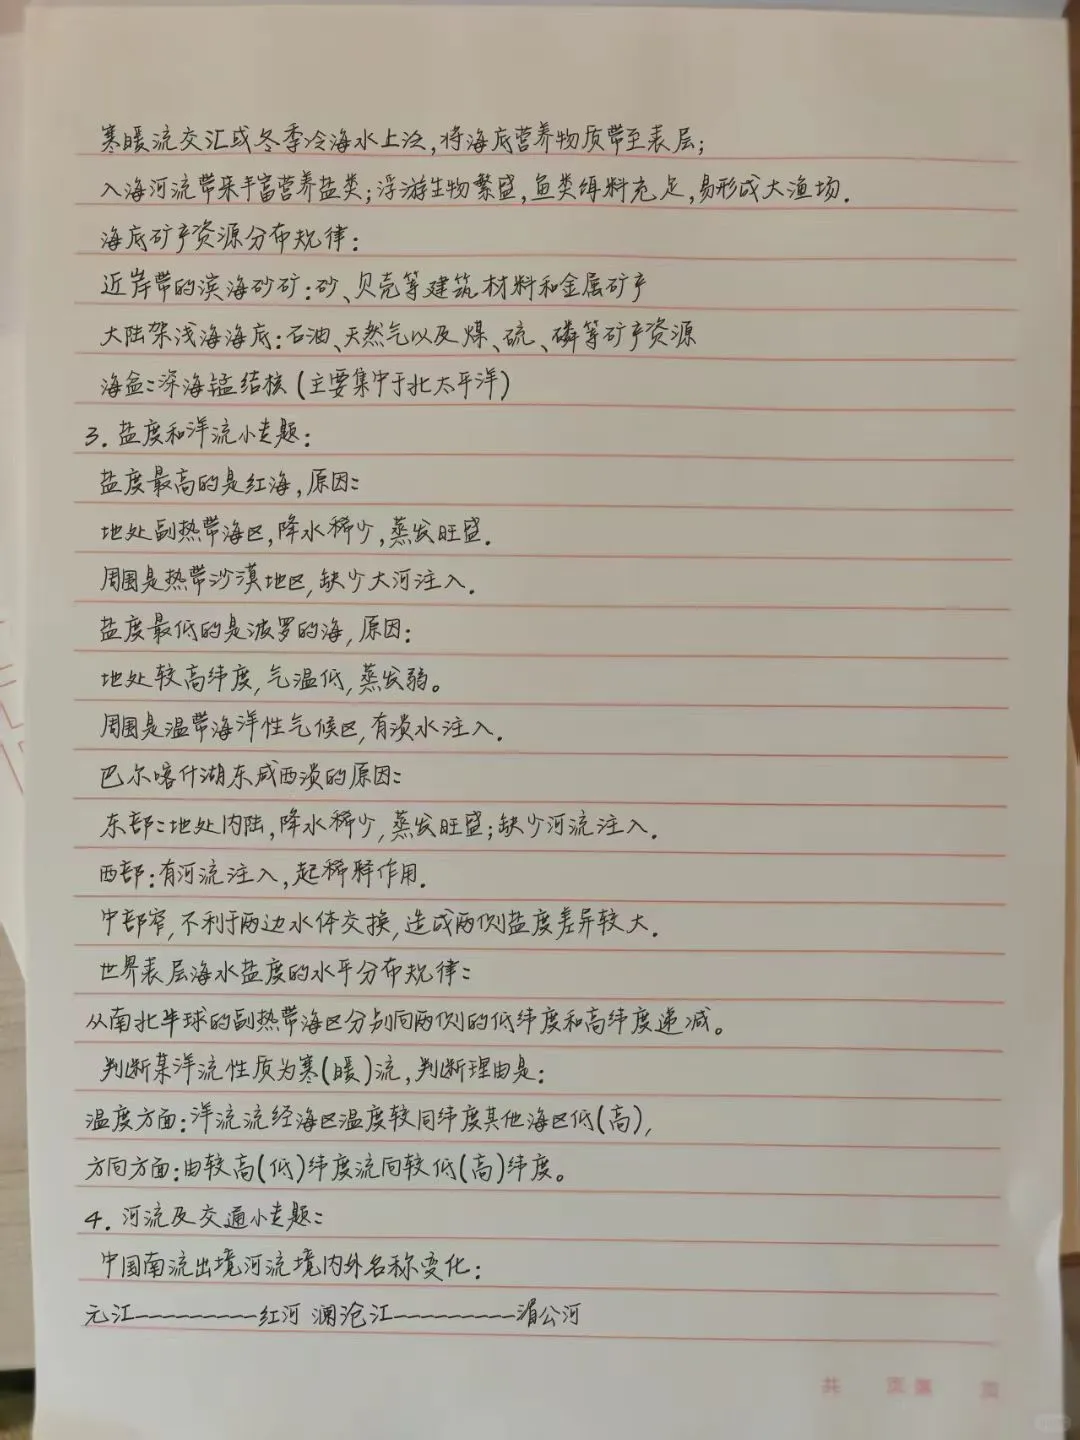 寒暖流交汇或冬季冷海水上泛,将海底营养物质带至表层;
入海河流带来丰富营养盐类;浮游生物繁盛,鱼类饵料充足,易形成大渔场.
海底矿产资源分布规律:
近岸带的滨海砂矿:砂、贝壳等建筑材料和金属矿产
大陆架浅海海底:石油、天然气以及煤、硫、磷等矿产资源
海盆:深海锰结核(主要集中于北太平洋)
3. 盐度和洋流小专题:
盐度最高的是红海,原因:
地处副热带海区,降水稀少,蒸发旺盛.
周围是热带沙漠地区,缺少大河注入.
盐度最低的是波罗的海,原因:
地处较高纬度,气温低,蒸发弱。
周围是温带海洋性气候区,有淡水注入.
巴尔喀什湖东咸西淡的原因:
东部:地处内陆,降水稀少,蒸发旺盛;缺少河流注入.
西部:有河流注入,起稀释作用.
中部窄,不利于两边水体交换,造成两侧盐度差异较大.
世界表层海水盐度的水平分布规律:
从南北半球的副热带海区分别向两侧的低纬度和高纬度递减。
判断某洋流性质为寒(暖)流,判断理由是:
温度方面:洋流流经海区温度较同纬度其他海区低(高),
方向方面:由较高(低)纬度流向较低(高)纬度。
4. 河流及交通小专题:
中国南流出境河流境内外名称变化:
元江----------红河 澜沧江----------湄公河
共 页第 页